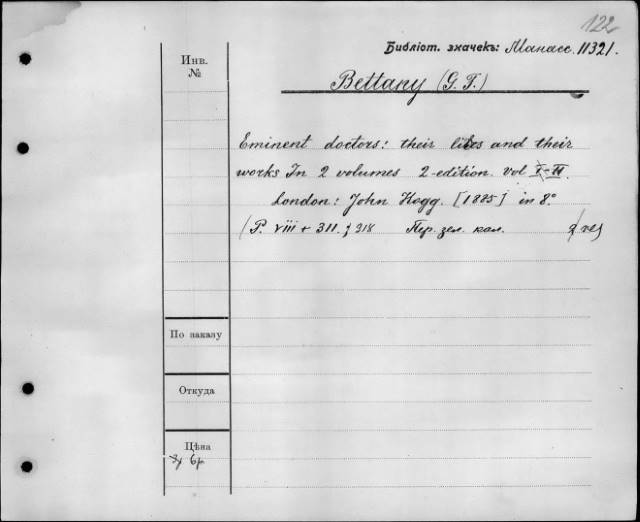 122
Библіот. значекъ: Манасс. 11321.
Инв.
№
Bettany (G. T.)
Eminent doctors: their lives and their
works In 2 volumes 2-edition. vol I-II.
London: John Hogg. [1885] in 8°
(P. viii + 311. + 318 Пер. зел. кал.
По заказу
Откуда
Цѣна
6р